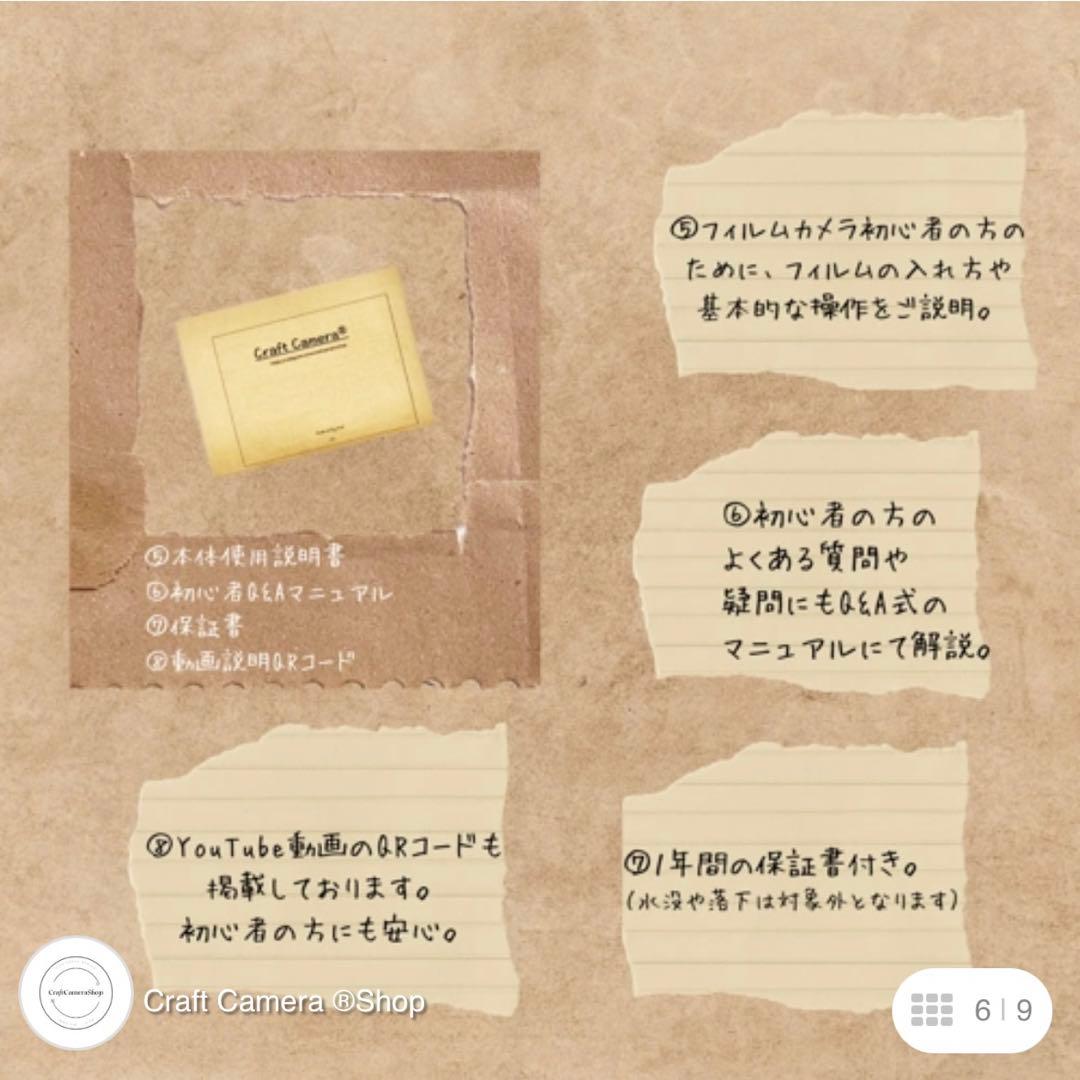 Craft Camera®
⑤本体使用説明書
⑥初心者Q&Aマニュアル
⑦保証書
⑧動画説明QRコード
⑤フィルムカメラ初心者の方の
ために、フィルムの入れ方や
基本的な操作をご説明。
⑥初心者の方の
よくある質問や
疑問にもQ&A式の
マニュアルにて解説。
⑧YouTube動画のQRコードも
掲載しております。
初心者の方にも安心。
⑦1年間の保証書付き。
(水没や落下は対象外となります)
CraftCameraShop
Craft Camera ®Shop
6|9